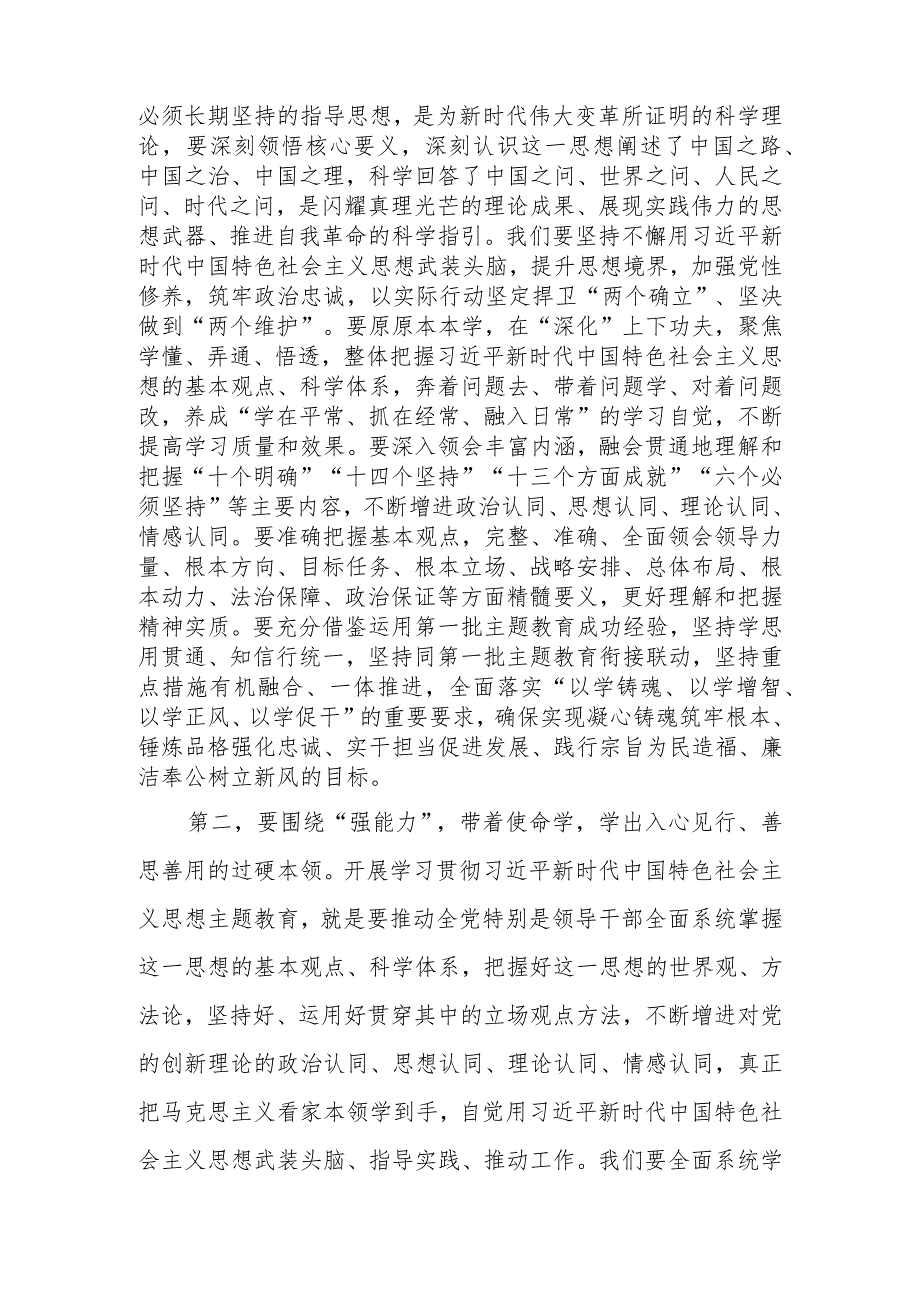 必须长期坚持的指导思想，是为新时代伟大变革所证明的科学理
论，要深刻领悟核心要义，深刻认识这一思想阐述了中国之路、
中国之治、中国之理，科学回答了中国之问、世界之问、人民之
问、时代之问，是闪耀真理光芒的理论成果、展现实践伟力的思
想武器、推进自我革命的科学指引。我们要坚持不懈用习近平新
时代中国特色社会主义思想武装头脑，提升思想境界，加强党性
修养，筑牢政治忠诚，以实际行动坚定捍卫“两个确立”、坚决
做到“两个维护”。要原原本本学，在“深化”上下功夫，聚焦
学懂、弄通、悟透，整体把握习近平新时代中国特色社会主义思
想的基本观点、科学体系，奔着问题去、带着问题学、对着问题
改，养成“学在平常、抓在经常、融入日常”的学习自觉，不断
提高学习质量和效果。要深入领会丰富内涵，融会贯通地理解和
把握“十个明确”“十四个坚持”“十三个方面成就”“六个必
须坚持”等主要内容，不断增进政治认同、思想认同、理论认同、
情感认同。要准确把握基本观点，完整、准确、全面领会领导力
量、根本方向、目标任务、根本立场、战略安排、总体布局、根
本动力、法治保障、政治保证等方面精髓要义，更好理解和把握
精神实质。要充分借鉴运用第一批主题教育成功经验，坚持学思
用贯通、知信行统一，坚持同第一批主题教育衔接联动，坚持重
点措施有机融合、一体推进，全面落实“以学铸魂、以学增智、
以学正风、以学促干”的重要要求，确保实现凝心铸魂筑牢根本、
锤炼品格强化忠诚、实干担当促进发展、践行宗旨为民造福、廉
洁奉公树立新风的目标。
第二，要围绕“强能力”，带着使命学，学出入心见行、善
思善用的过硬本领。开展学习贯彻习近平新时代中国特色社会主
义思想主题教育，就是要推动全党特别是领导干部全面系统掌握
这一思想的基本观点、科学体系，把握好这一思想的世界观、方
法论，坚持好、运用好贯穿其中的立场观点方法，不断增进对党
的创新理论的政治认同、思想认同、理论认同、情感认同，真正
把马克思主义看家本领学到手，自觉用习近平新时代中国特色社
会主义思想武装头脑、指导实践、推动工作。我们要全面系统学